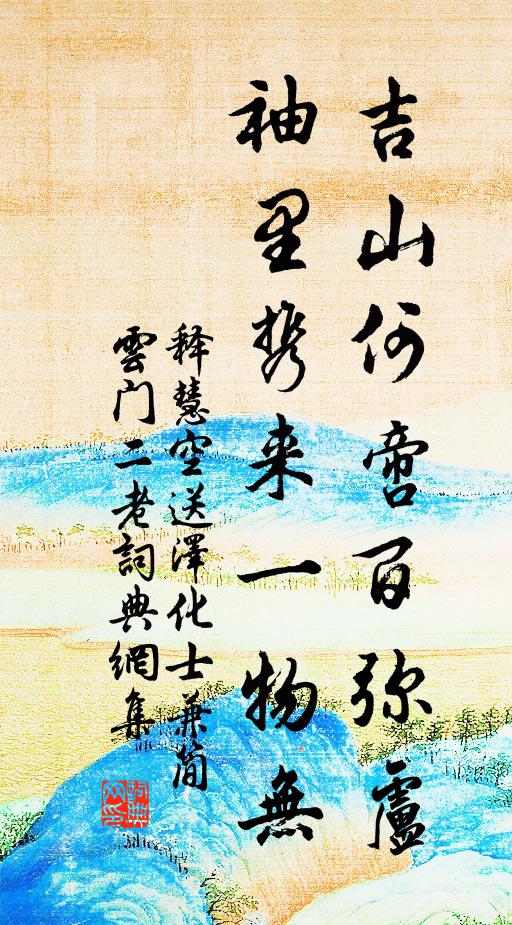 吉山何啻百弥盧
袖里携来一物無
释慧空送澤化士兼简
雲门二老詞典網集